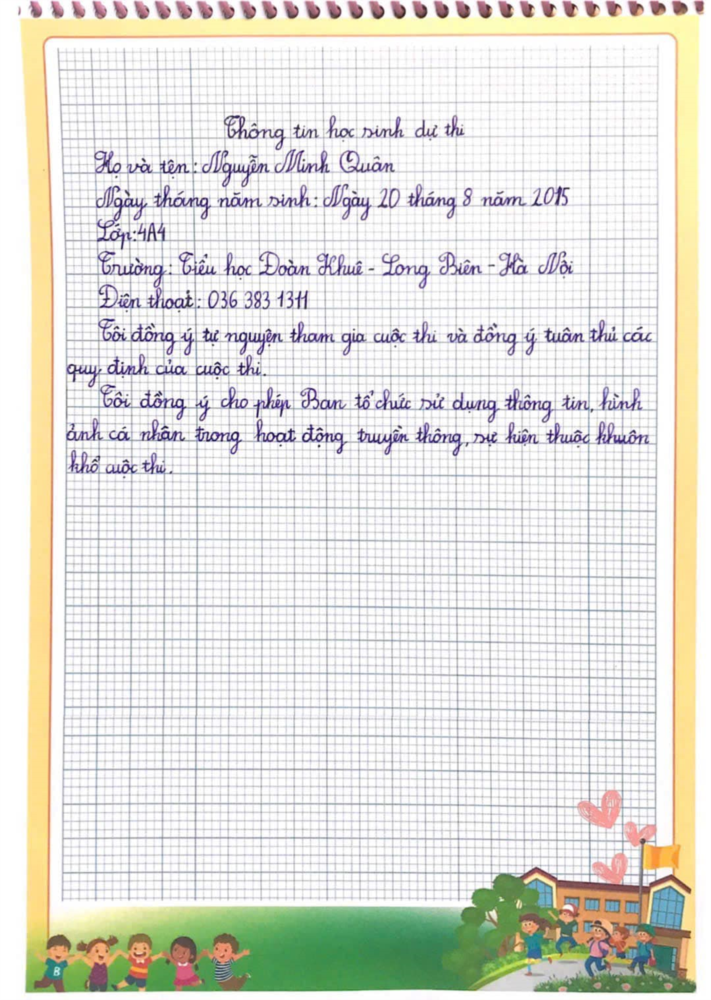 Thông tin học sinh dự thi
Họ và tên: Nguyễn Minh Quân
Ngày tháng năm sinh: Ngày 20 tháng 8 năm 2015
Lớp: 4A4
Trường: Tiểu học Đoàn Khuê - Long Biên - Hà Nội
Điện thoại: 036 383 1311
Tôi đồng ý tự nguyện tham gia cuộc thi và đồng ý tuân thủ các
quy định của cuộc thi.
Tôi đồng ý cho phép Ban tổ chức sử dụng thông tin, hình
ảnh cá nhân trong hoạt động truyền thông, sự kiện thuộc khuôn
khổ cuộc thi.
B